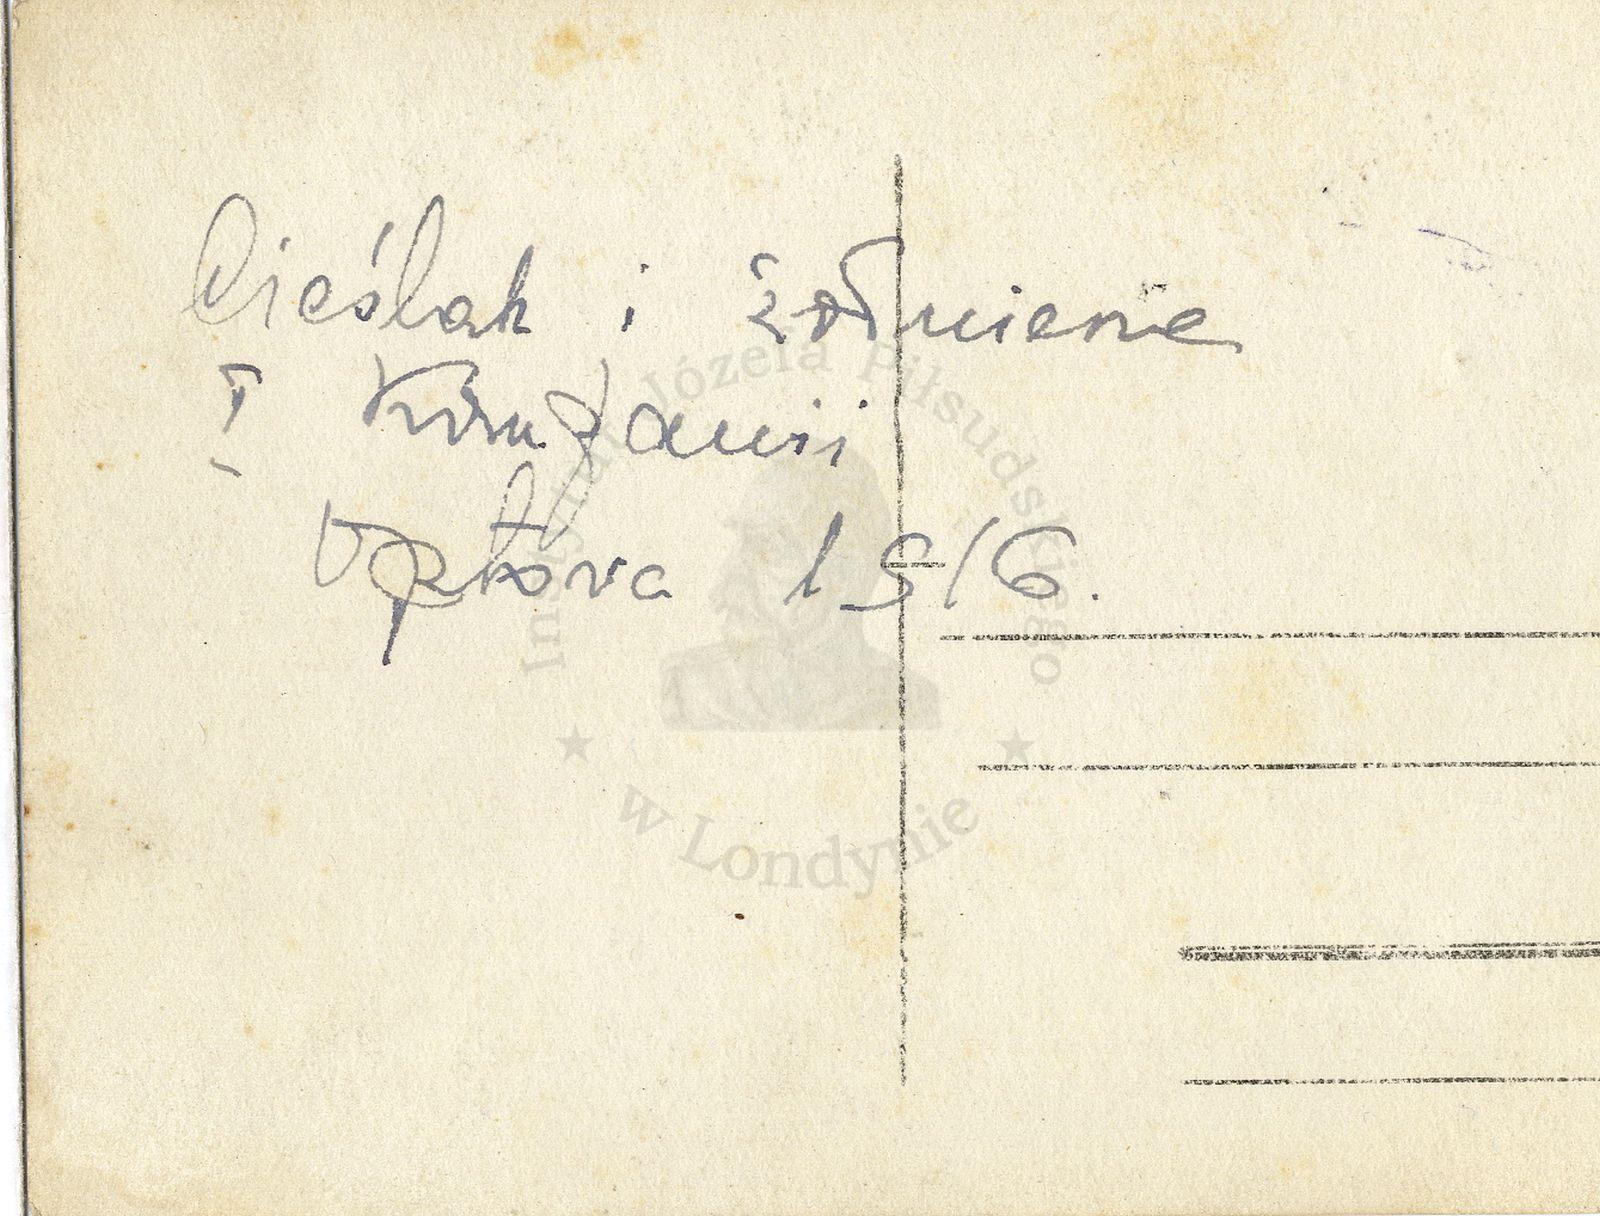 Cieślak i żołnierze
I Kompanii
Optova 1916.
Instytut Józefa Piłsudskiego
w Londynie